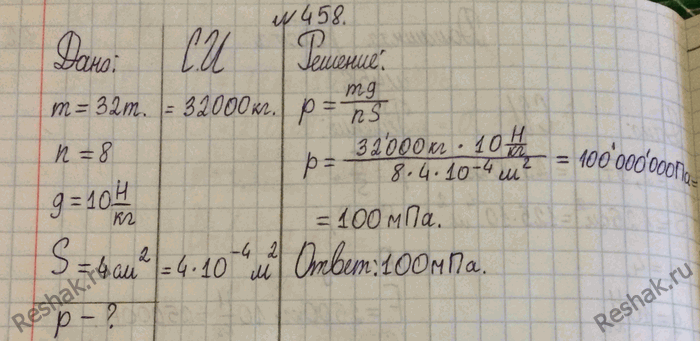 №458.
Дано:
m = 32т.
n = 8
g = 10 Н/кг
S = 4см²
p - ?
СИ
= 32000кг.
= 4·10⁻⁴ м²
Решение:
p = mg/nS
p = 32'000кг · 10 Н/кг / 8·4·10⁻⁴ м² = 100'000'000Па =
= 100мПа.
Ответ: 100мПа.
Reshak.ru
Reshak.ru